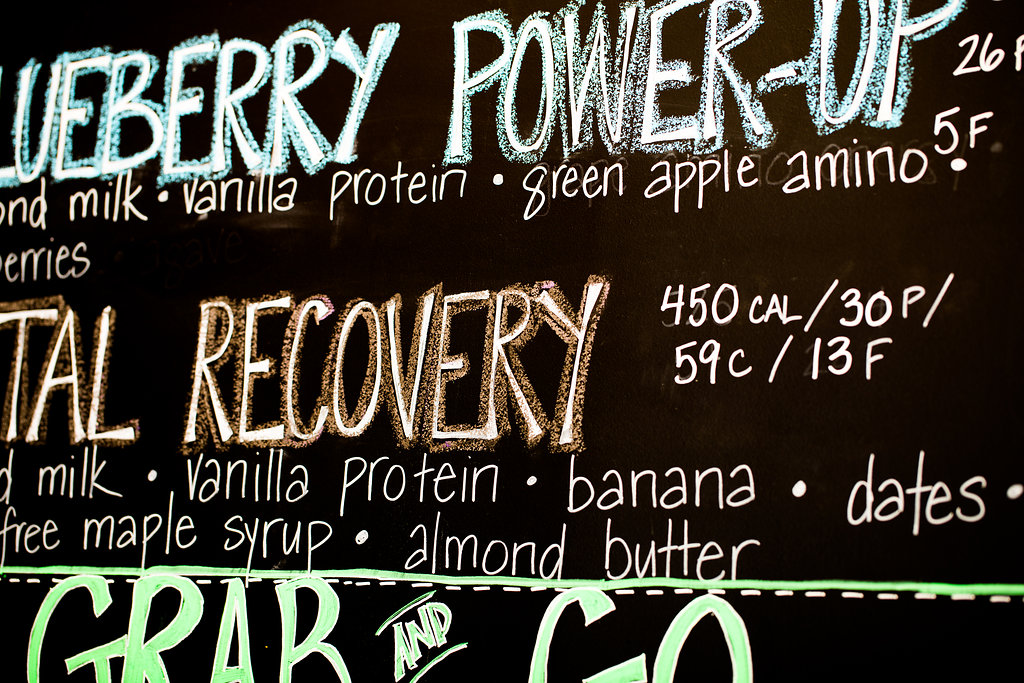 LUEBERRY POWER-UP
26 P
5 F
ond milk • vanilla protein • green apple amino •
berries
TAL RECOVERY
450 CAL / 30 P /
59 C / 13 F
d milk • vanilla protein • banana • dates •
free maple syrup • almond butter
GRAB AND GO